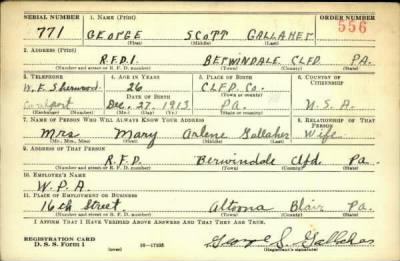 SERIAL NUMBER 1. NAME (Print) ORDER NUMBER
771 GEORGE SCOTT GALLAHER 556
(First) (Middle) (Last)
2. ADDRESS (Print)
R.F.D.1. BERWINDALE CLFD. PA.
(Number and street or R. F. D. number) (Town) (County) (State)
3. TELEPHONE 4. AGE IN YEARS 5. PLACE OF BIRTH 6. COUNTRY OF CITIZENSHIP
W.E. Sherwood 26 CLFD. Co.
DATE OF BIRTH (Town or county)
Dec. 27. 1913 PA. U.S.A.
(Exchange) (Number) (Mo.) (Day) (Yr.) (State or country)
7. NAME OF PERSON WHO WILL ALWAYS KNOW YOUR ADDRESS 8. RELATIONSHIP OF THAT PERSON
Mrs Mary Arlene Gallaher Wife
(Mr., Mrs., Miss) (First) (Middle) (Last)
9. ADDRESS OF THAT PERSON
R.F.D. Berwindale Clfd. Pa.
(Number and street or R. F. D. number) (Town) (County) (State)
10. EMPLOYER'S NAME
W.P.A.
11. PLACE OF EMPLOYMENT OR BUSINESS
16th Street Altoona Blair Pa.
(Number and street or R. F. D. number) (Town) (County) (State)
I AFFIRM THAT I HAVE VERIFIED ABOVE ANSWERS AND THAT THEY ARE TRUE.
REGISTRATION CARD
D. S. S. FORM 1 16-17105 George S. Gallaher
(Registrant's signature)